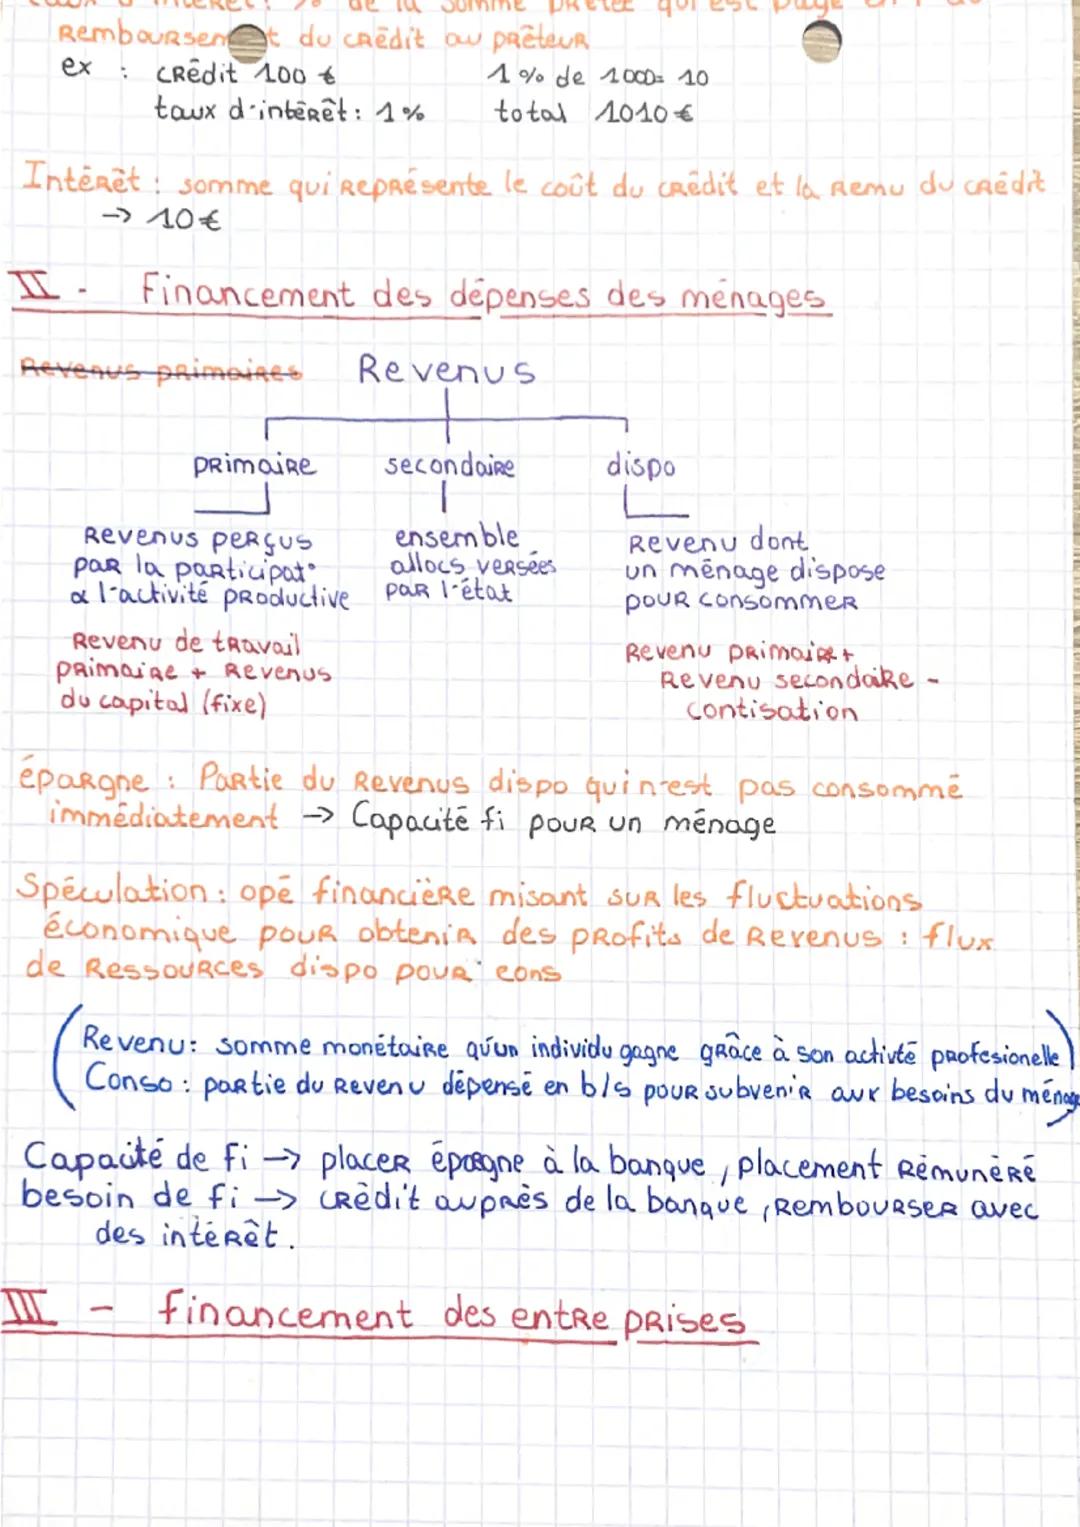 taux d'intérêt : % de la somme prêtée qui est payé
Rembousem t du crédit au prêteur
ex : crédit 100 €
1 % de 1000= 10
taux d'intérêt : 1 %
total 1010 €
Intérêt : somme qui représente le coût du crédit et la remu du crédit
→ 10 €
II - Financement des dépenses des ménages
Revenus primaires
Revenus
primaire secondaire dispo
Revenus perçus
par la participat°
à l'activité productive
ensemble
allocs versées
par l'état
Revenu dont
un ménage dispose
pour consommer
Revenu de travail
primaire + Revenus
du capital (fixe)
Revenu primaire +
Revenu secondaire -
contisation
épargne : Partie du Revenus dispo qui n'est pas consommé
immédiatement → Capacité fi pour un ménage
Spéculation : opé financière misant sur les fluctuations
économique pour obtenir des profits de Revenus : flux
de Ressources dispo pour cons
(Revenu : somme monétaire qu'un individu gagne grâce à son activté profesionelle)
Conso : partie du Revenu dépensé en b/s pour subvenir aux besoins du ménage
Capacité de fi → placer épargne à la banque, placement Rémunéré
besoin de fi → crédit auprès de la banque, Rembourser avec
des intérêt.
III - financement des entreprises